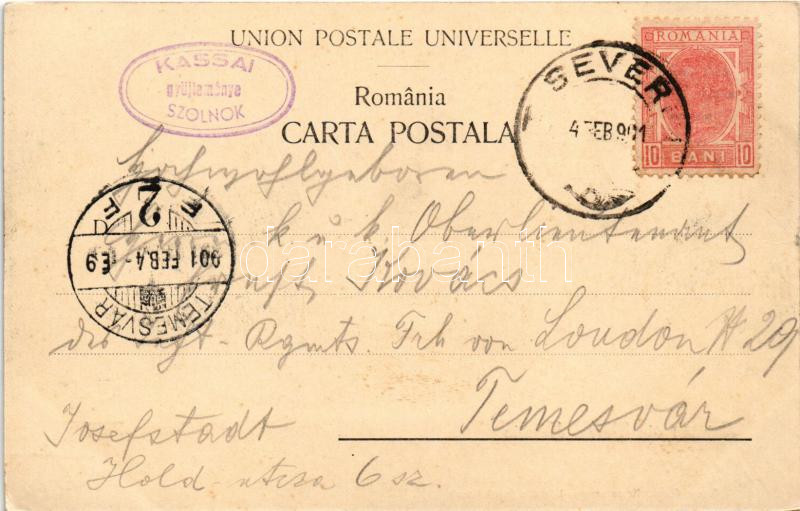 UNION POSTALE UNIVERSELLE
KASSAI
gyűjteménye
SZOLNOK
România
CARTA POSTALA
SEVER
4 FEB 901
ROMANIA
10 BANI 10
Hochwohlgeboren
k u k Oberlieutenant
Kovács
des Rgmts. Frh von Loudon № 29
Temesvár
Josefstadt
Hold-utcza 6 sz.
TEMESVÁR
901 FEB. 4
2
darabanth